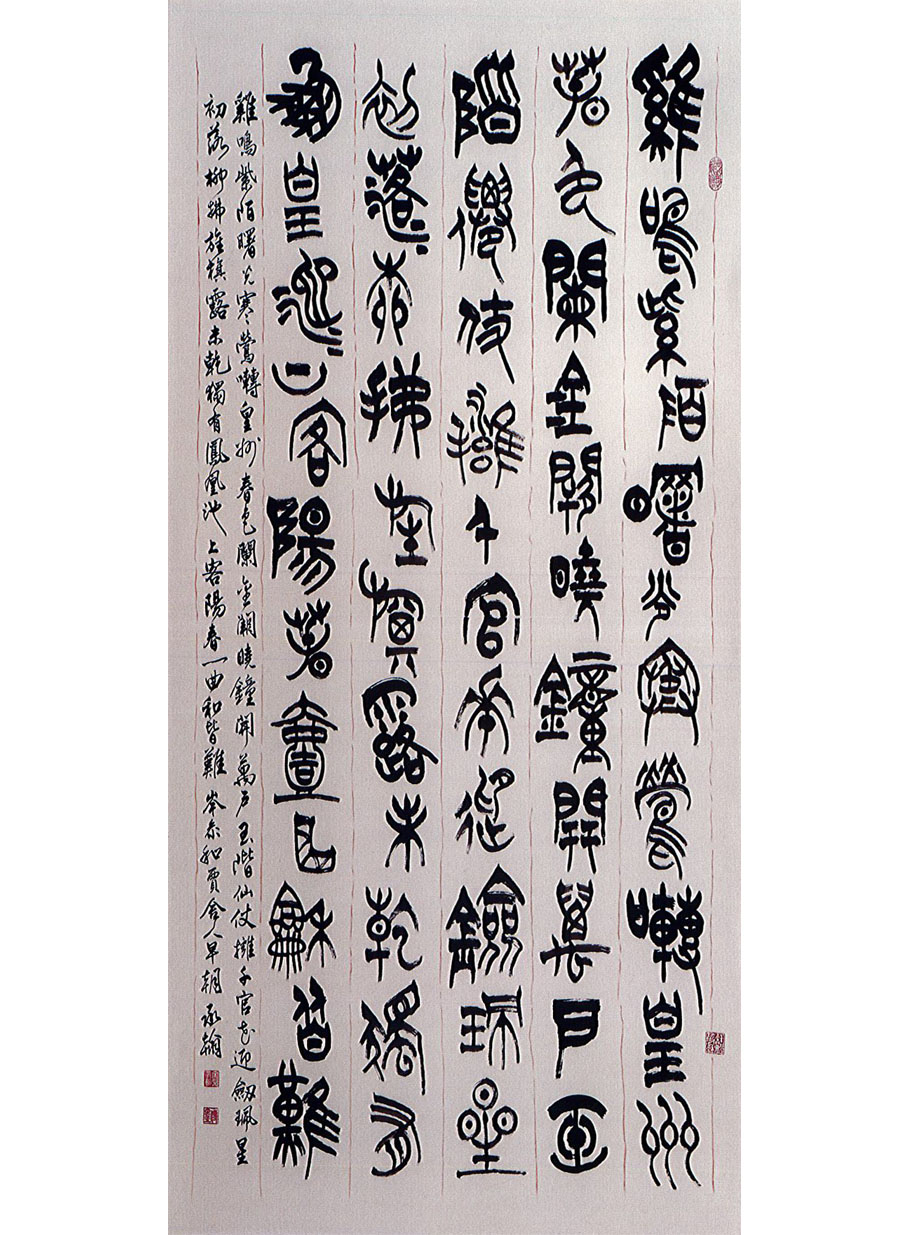 雞鳴紫陌曙光寒鶯囀皇州
春色闌金闕曉鐘開萬戶玉
階僊仗擁千官花迎劍珮星
初落柳拂旌旗露未乾獨有
鳳皇池上客陽春壹曲龢皆難
雞鳴紫陌曙光寒鶯囀皇州春色闌金闕曉鐘開萬戶玉階仙仗擁千官花迎劍珮星
初落柳拂旌旗露未乾獨有鳳凰池上客陽春一曲和皆難 岑參和賈舍人早朝 承翰